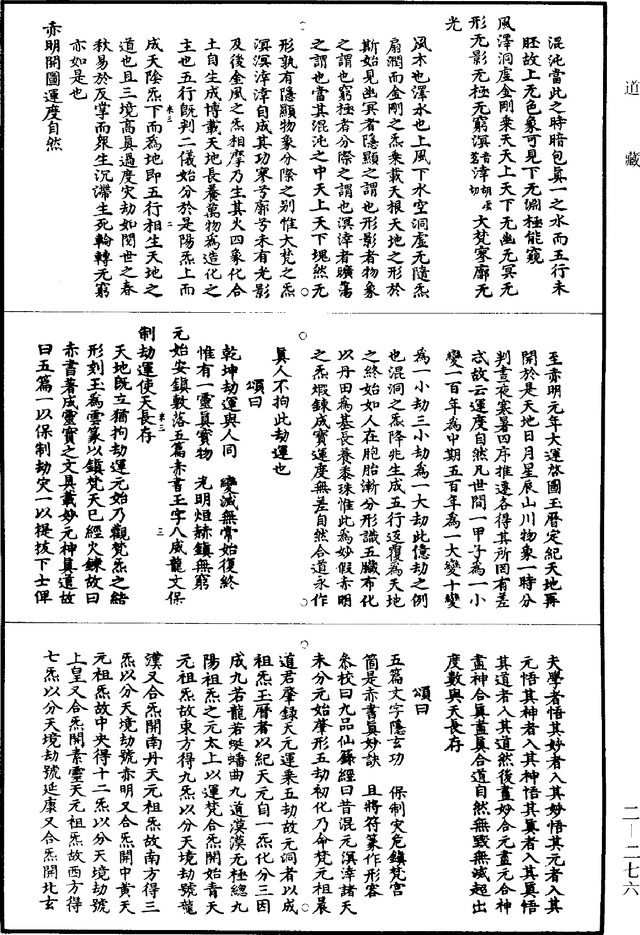 道藏
混沌當此之時暗包眞一之水而五行未
胚故上无色象可見下无淵極能窺
風澤洞虛金剛乘天天上天下无幽无冥无
形无影无極无窮溟涬大梵寥廓无
光
風木也澤水也上風下水空洞虛无隨炁
扇潤而金剛之炁乘載天根天地之形於
斯始見幽冥者隱顯之謂也形影者物象
之謂也窮極者分際之謂也溟涬者曠蕩
之謂也當其混沌之中天上天下塊然无
形孰有隱顯物象分際之别惟大梵之炁
溟溟涬涬自成其功寥兮廓兮未有光影
及後金風之炁相摩乃生其火四象化合
土自生成博載天地長養萬物為造化之
主也五行旣判二儀始分於是陽炁上而
成天陰炁下而為地即五行相生天地之
道也且三境高眞過度灾劫如閱世之春
秋易於反掌而衆生沉滯生死輪轉无窮
亦如是也
赤明開圖運度自然
至赤明元年大運啓圖玉曆定紀天地再
開於是天地日月星辰山川物象一時分
判晝夜寒暑四序推遷各得其所罔有差
忒故云運度自然凡世間一甲子為一小
變一百年為中期五百年為一大變十變
為一小劫三小劫為一大劫此億劫之例
也混洞之炁降兆生成五行返覆為天地
之終始如人在胞胎漸分形識五臟布化
以丹田為基長養黍珠惟此為妙假赤明
之炁煅鍊成寶運度無差自然合道永作
眞人不拘此劫運也
頌曰
乾坤劫運與人同　變滅無常始復終
惟有一靈眞寶物　光明烜赫鎮無窮
元始安鎮敷落五篇赤書玉字八威龍文保
制劫運使天長存
天地旣立猶拘劫運元始乃觀梵炁之結
形刻玉為雲篆以鎮梵天已經火鍊故曰
赤書著成靈寶之文具載妙元神眞道故
曰五篇一以保制劫灾一以提拔下士俾
夫學者悟其妙者入其妙悟其元者入其
元悟其神者入其神悟其眞者入其眞悟
其道者入其道然後盡妙合元盡元合神
盡神合眞盡眞合道自然無毀無滅超出
度數與天長存
頌曰
五篇文字隱玄功　保制灾危鎮梵宮
箇是赤書眞妙訣　且將符篆作形容
叅校曰九品仙籙經曰昔混元溟涬諸天
未分元始肇形五劫初化乃命梵元祖晨
道君肇錄天元運乘五劫故元洞者以成
祖炁玉曆者以紀天元自一炁化分三因
成九若龍若蜓蟠曲九道漠漠无極總九
陽祖炁之元太上以運梵合炁開始青天
元祖炁故東方得九炁以分天境劫號龍
漢又合炁開南丹天元祖炁故南方得三
炁以分天境劫號赤明又合炁開中黄天
元祖炁故中央得十二炁以分天境劫號
上皇又合炁開素靈天元祖炁故西方得
七炁以分天境劫號延康又合炁開北玄
二—二七六